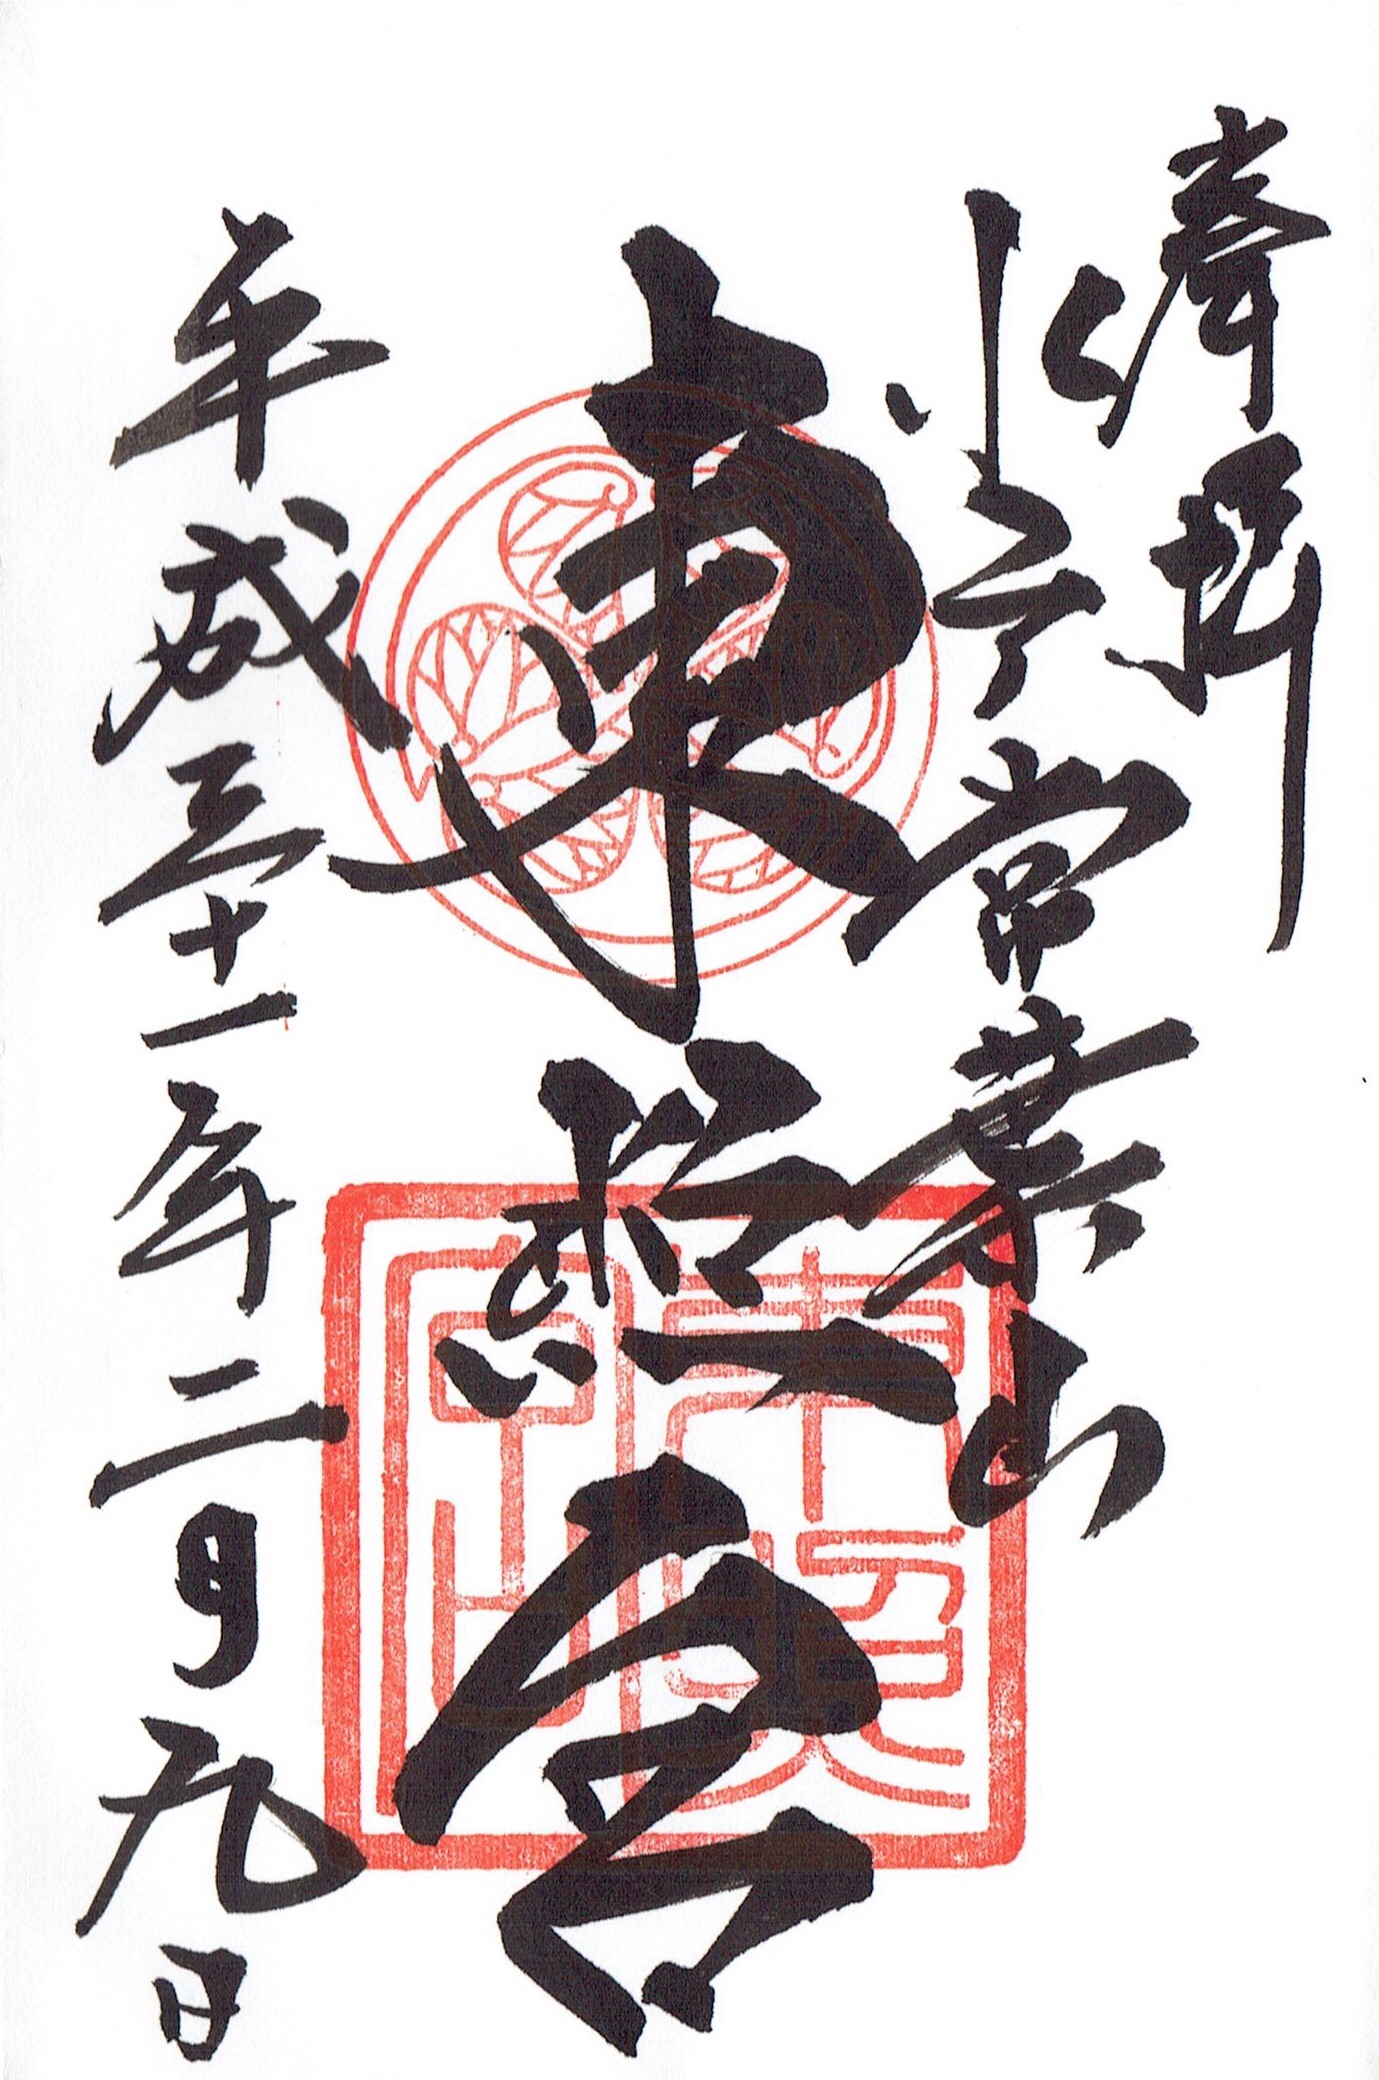 奉拝
水戸常葉山
東照宮
平成三十一年二月九日
東照宮